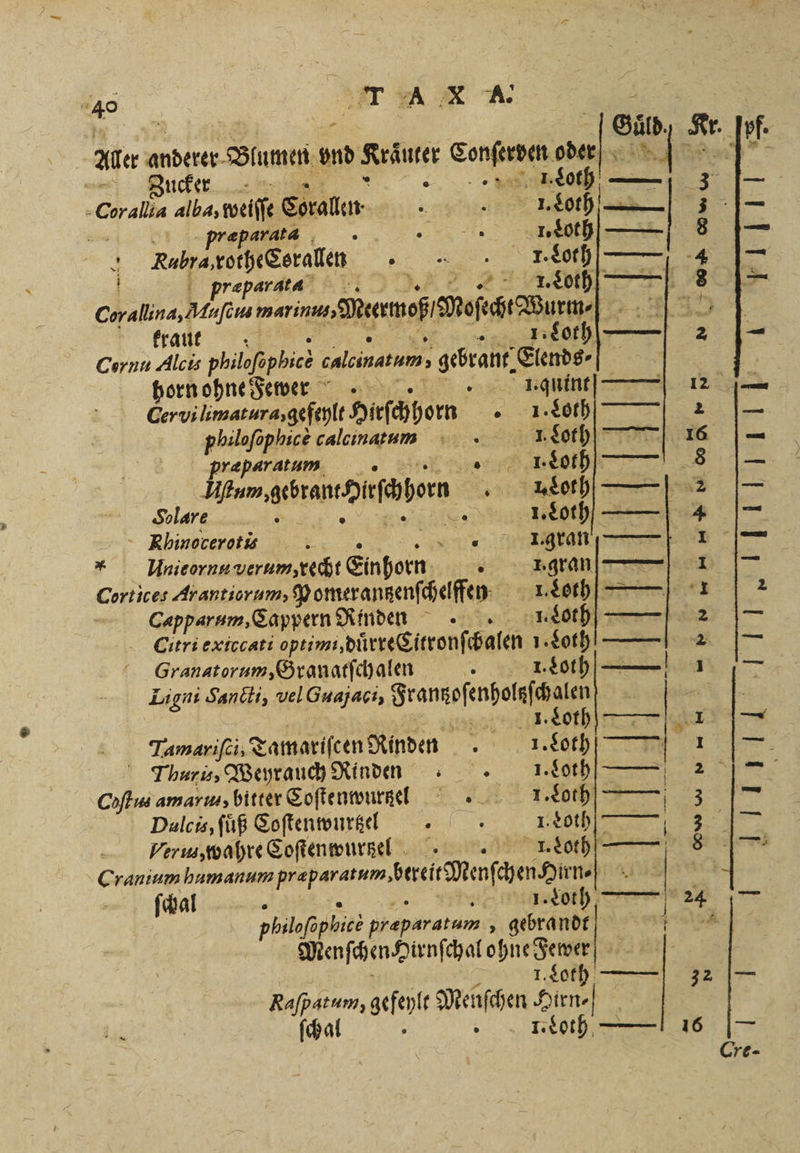 40
T A X A.
Güld. Kr. pf.
Aller anderer Blumen vnd Kräuter Conserven oder
Zucker . . . . 1.Loth —— 3 —
Corallia alba, weisse Corallen . . 1.Loth —— 3 —
præparata . . . 1.Loth —— 8 —
Rubra, rothe Corallen . . . 1.Loth —— 4 —
præparata . . . 1.Loth —— 8 —
Corallina, Muscus marinus, Meermoß/Mosecht Wurm-
kraut . . . . 1.Loth —— 2 —
Cornu Alcis philosophicè calcinatum, gebrant Elends-
horn ohne Fewer . . . 1.quint —— 12 —
Cervi limatura, gefeylt Hirschhorn . 1.Loth —— 2 —
philosophicè calcinatum . 1.Loth —— 16 —
præparatum . . . 1.Loth —— 8 —
Ustum, gebrant Hirschhorn . 1.Loth —— 2 —
Solare . . . . 1.Loth —— 4 —
Rhinocerotis . . . . 1.gran —— 1 —
* Unicornu verum, recht Einhorn . 1.gran —— 1 —
Cortices Arantiorum, Pomerantzenschelffen 1.Loth —— 1 2
Capparum, Cappern Rinden . . 1.Loth —— 2 —
Citri exiccati optimi, dürre Citronschalen 1.Loth —— 2 —
Granatorum, Granatschalen . 1.Loth —— 1 —
Ligni Sancti, vel Guajaci, Frantzosenholtzschalen
1.Loth —— 1 —
Tamarisci, Tamariscen Rinden . 1.Loth —— 1 —
Thuris, Weyrauch Rinden . . 1.Loth —— 2 —
Costus amarus, bitter Costenwurtzel . 1.Loth —— 3 —
Dulcis, süß Costenwurtzel . . 1.Loth —— 3 —
Verus, wahre Costenwurtzel . . 1.Loth —— 8 —
Cranium humanum præparatum, bereit Menschen Hirn-
schal . . . . 1.Loth —— 24 —
philosophicè præparatum, gebrandt
Menschen Hirnschal ohne Fewer
1.Loth —— 32 —
Raspatum, gefeylt Menschen Hirn-
schal . . 1.Loth —— 16 —
Cre-